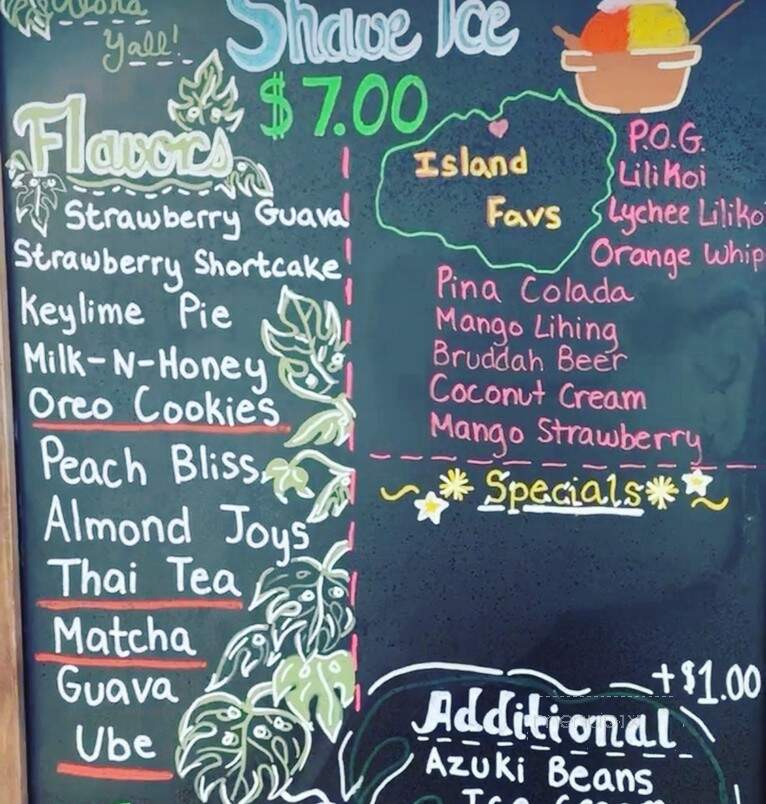 Aloha
Yall!
Shave Ice
$7.00
Flavors
Strawberry Guava
Strawberry Shortcake
Keylime Pie
Milk-N-Honey
Oreo Cookies
Peach Bliss
Almond Joys
Thai Tea
Matcha
Guava
Ube
Island
Favs
P.O.G.
LiliKoi
Lychee Liliko
Orange Whip
Pina Colada
Mango Lihing
Bruddah Beer
Coconut Cream
Mango Strawberry
Specials
+$1.00
Additional
Azuki Beans